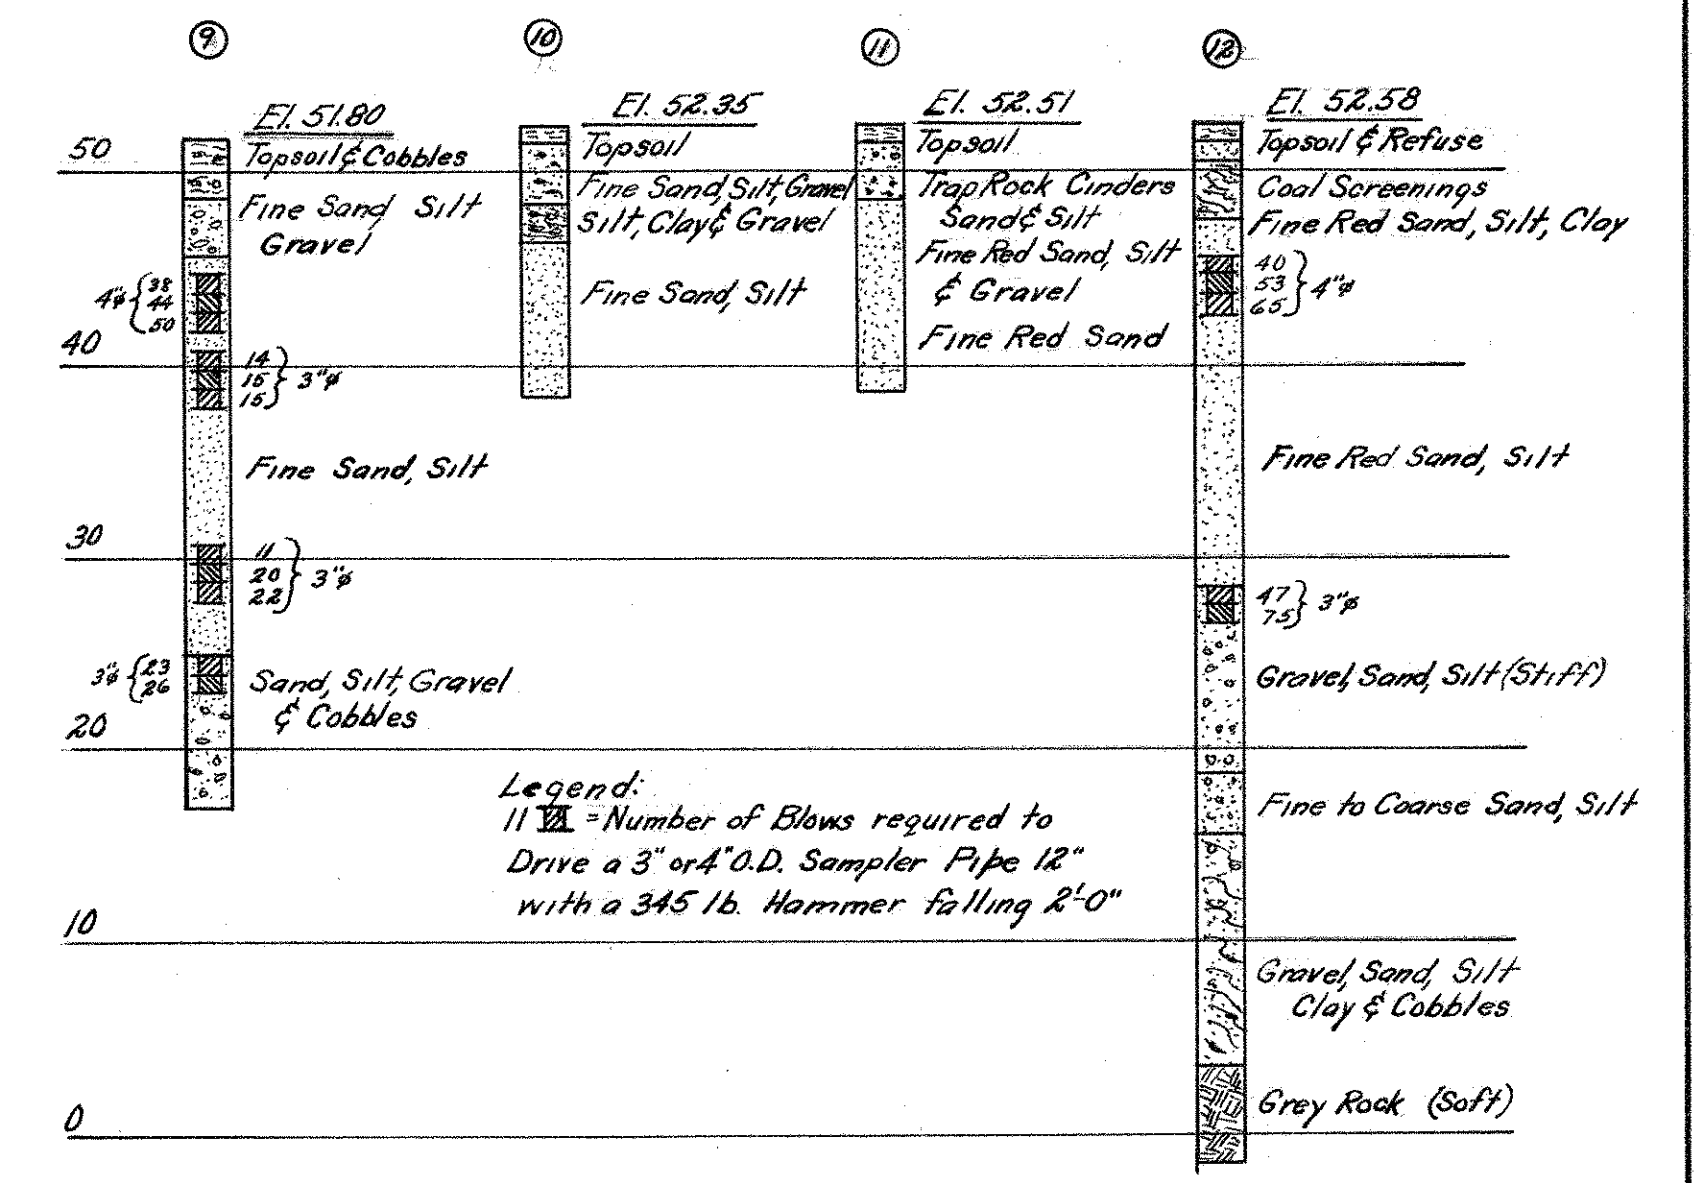 9
10
11
12
El. 51.80
El. 52.35
El. 52.51
El. 52.58
50
Topsoil & Cobbles
Fine Sand, Silt
Gravel
4"ø
38
44
50
40
14
15
15
3"ø
Fine Sand, Silt
30
11
20
22
3"ø
3"ø
23
26
Sand, Silt, Gravel
& Cobbles
20
10
0
Topsoil
Fine Sand, Silt, Gravel
Silt, Clay & Gravel
Fine Sand, Silt
Topsoil
Trap Rock Cinders
Sand & Silt
Fine Red Sand, Silt
& Gravel
Fine Red Sand
Topsoil & Refuse
Coal Screenings
Fine Red Sand, Silt, Clay
40
53
65
4"ø
Fine Red Sand, Silt
47
75
3"ø
Gravel, Sand, Silt (Stiff)
Fine to Coarse Sand, Silt
Gravel, Sand, Silt
Clay & Cobbles
Grey Rock (Soft)
Legend:
11 = Number of Blows required to
Drive a 3" or 4" O.D. Sampler Pipe 12"
with a 345 lb. Hammer falling 2'-0"